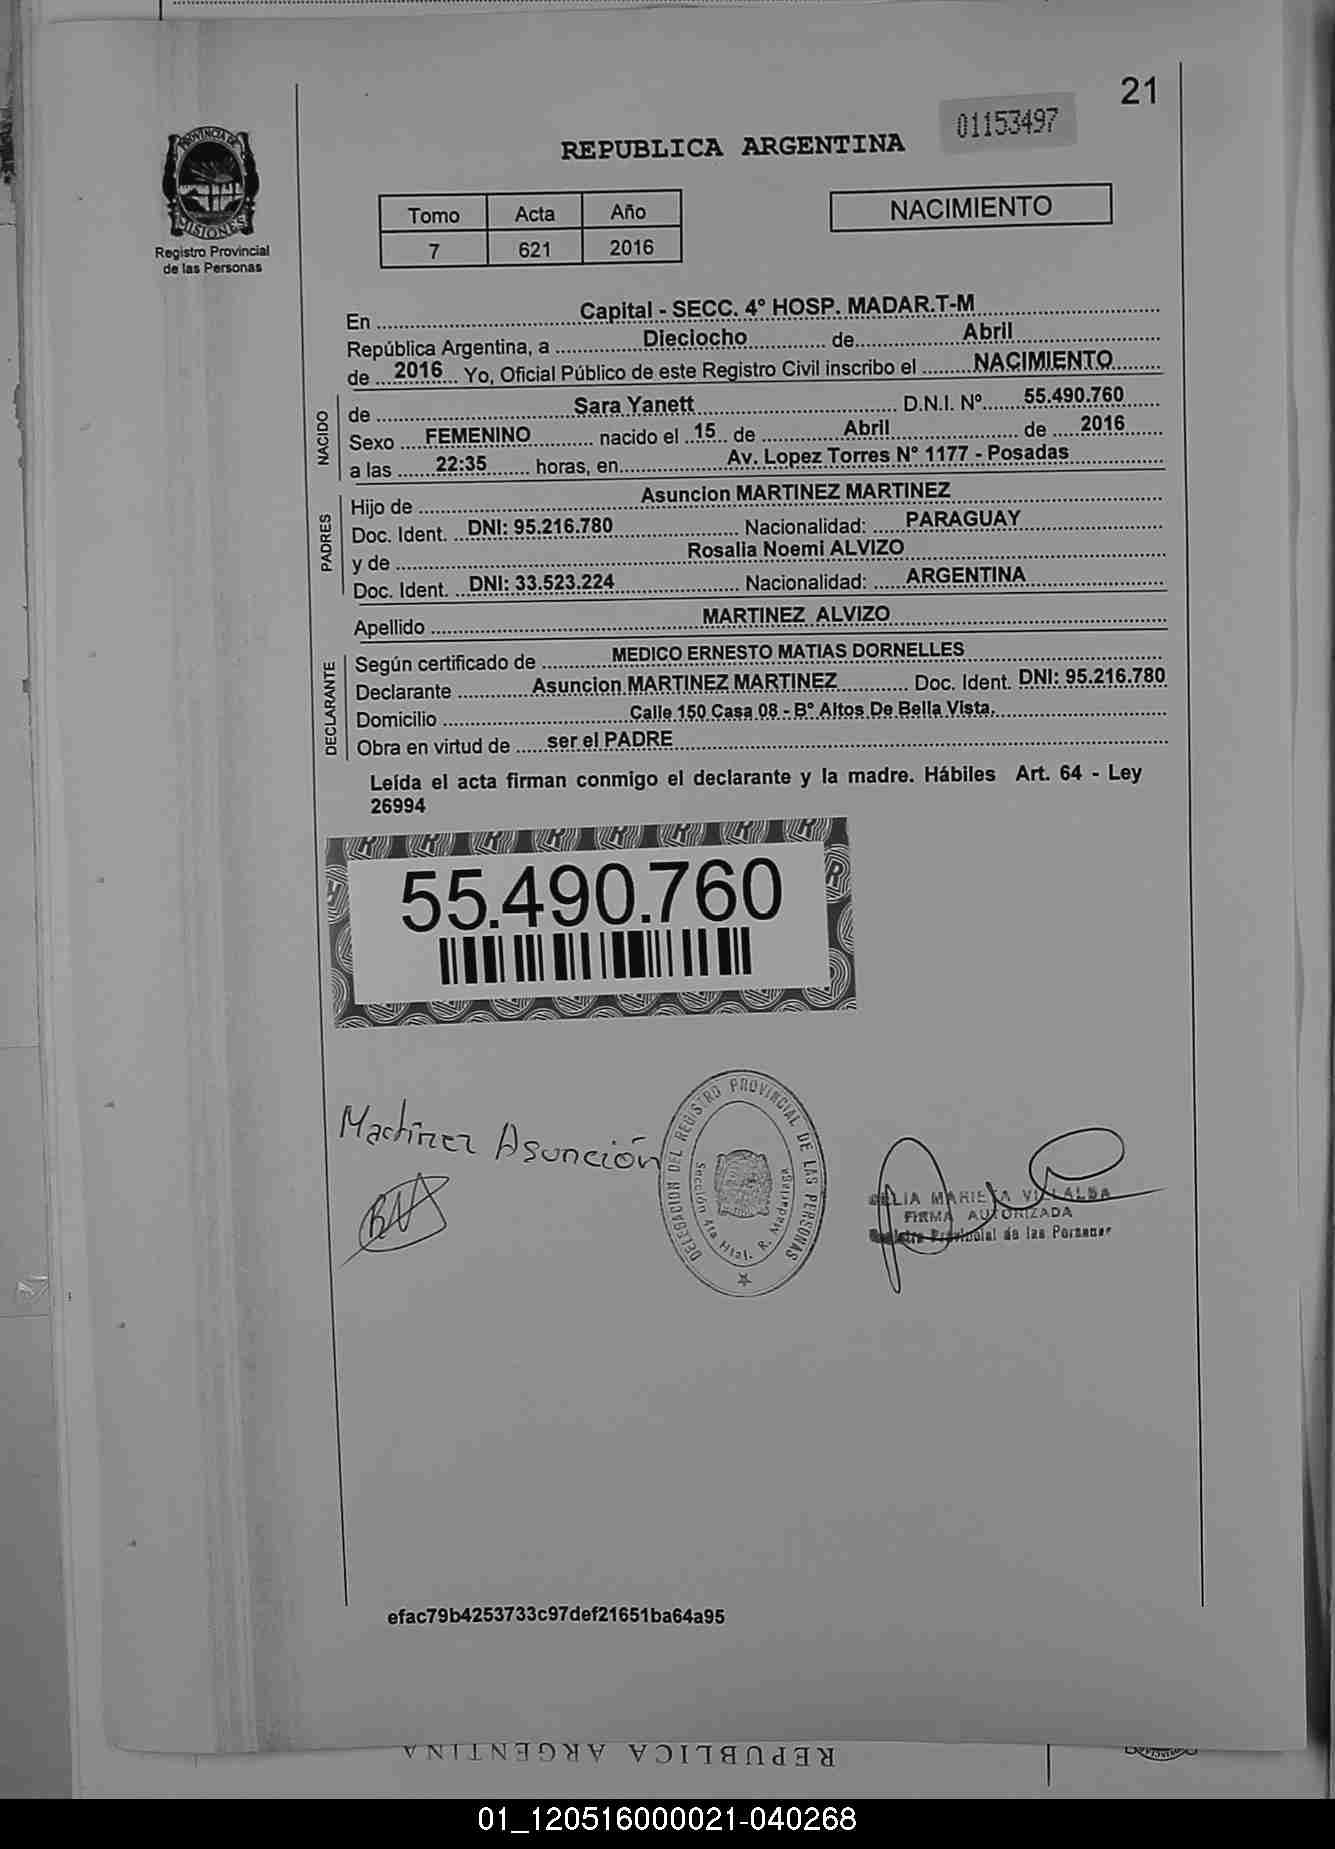 21
01153497
PROVINCIA DE
MISIONES
Registro Provincial
de las Personas
REPUBLICA ARGENTINA
Tomo Acta Año
7 621 2016
NACIMIENTO
En Capital - SECC. 4° HOSP. MADAR.T-M
República Argentina, a Dieciocho de Abril
de 2016 Yo, Oficial Público de este Registro Civil inscribo el NACIMIENTO
NACIDO
de Sara Yanett D.N.I. Nº 55.490.760
Sexo FEMENINO nacido el 15 de Abril de 2016
a las 22:35 horas, en Av. Lopez Torres N° 1177 - Posadas
PADRES
Hijo de Asuncion MARTINEZ MARTINEZ
Doc. Ident. DNI: 95.216.780 Nacionalidad: PARAGUAY
y de Rosalia Noemi ALVIZO
Doc. Ident. DNI: 33.523.224 Nacionalidad: ARGENTINA
Apellido MARTINEZ ALVIZO
DECLARANTE
Según certificado de MEDICO ERNESTO MATIAS DORNELLES
Declarante Asuncion MARTINEZ MARTINEZ Doc. Ident. DNI: 95.216.780
Domicilio Calle 150 Casa 08 - B° Altos De Bella Vista,
Obra en virtud de ser el PADRE
Leída el acta firman conmigo el declarante y la madre. Hábiles Art. 64 - Ley
26994
55.490.760
Martinez Asunción
DELEGACION DEL REGISTRO PROVINCIAL DE LAS PERSONAS
Sección 4ta Htal. R. Madariaga
MARIELA VILLALBA
FIRMA AUTORIZADA
Registro Provincial de las Personas
efac79b4253733c97def21651ba64a95
REPUBLICA ARGENTINA
01_120516000021-040268